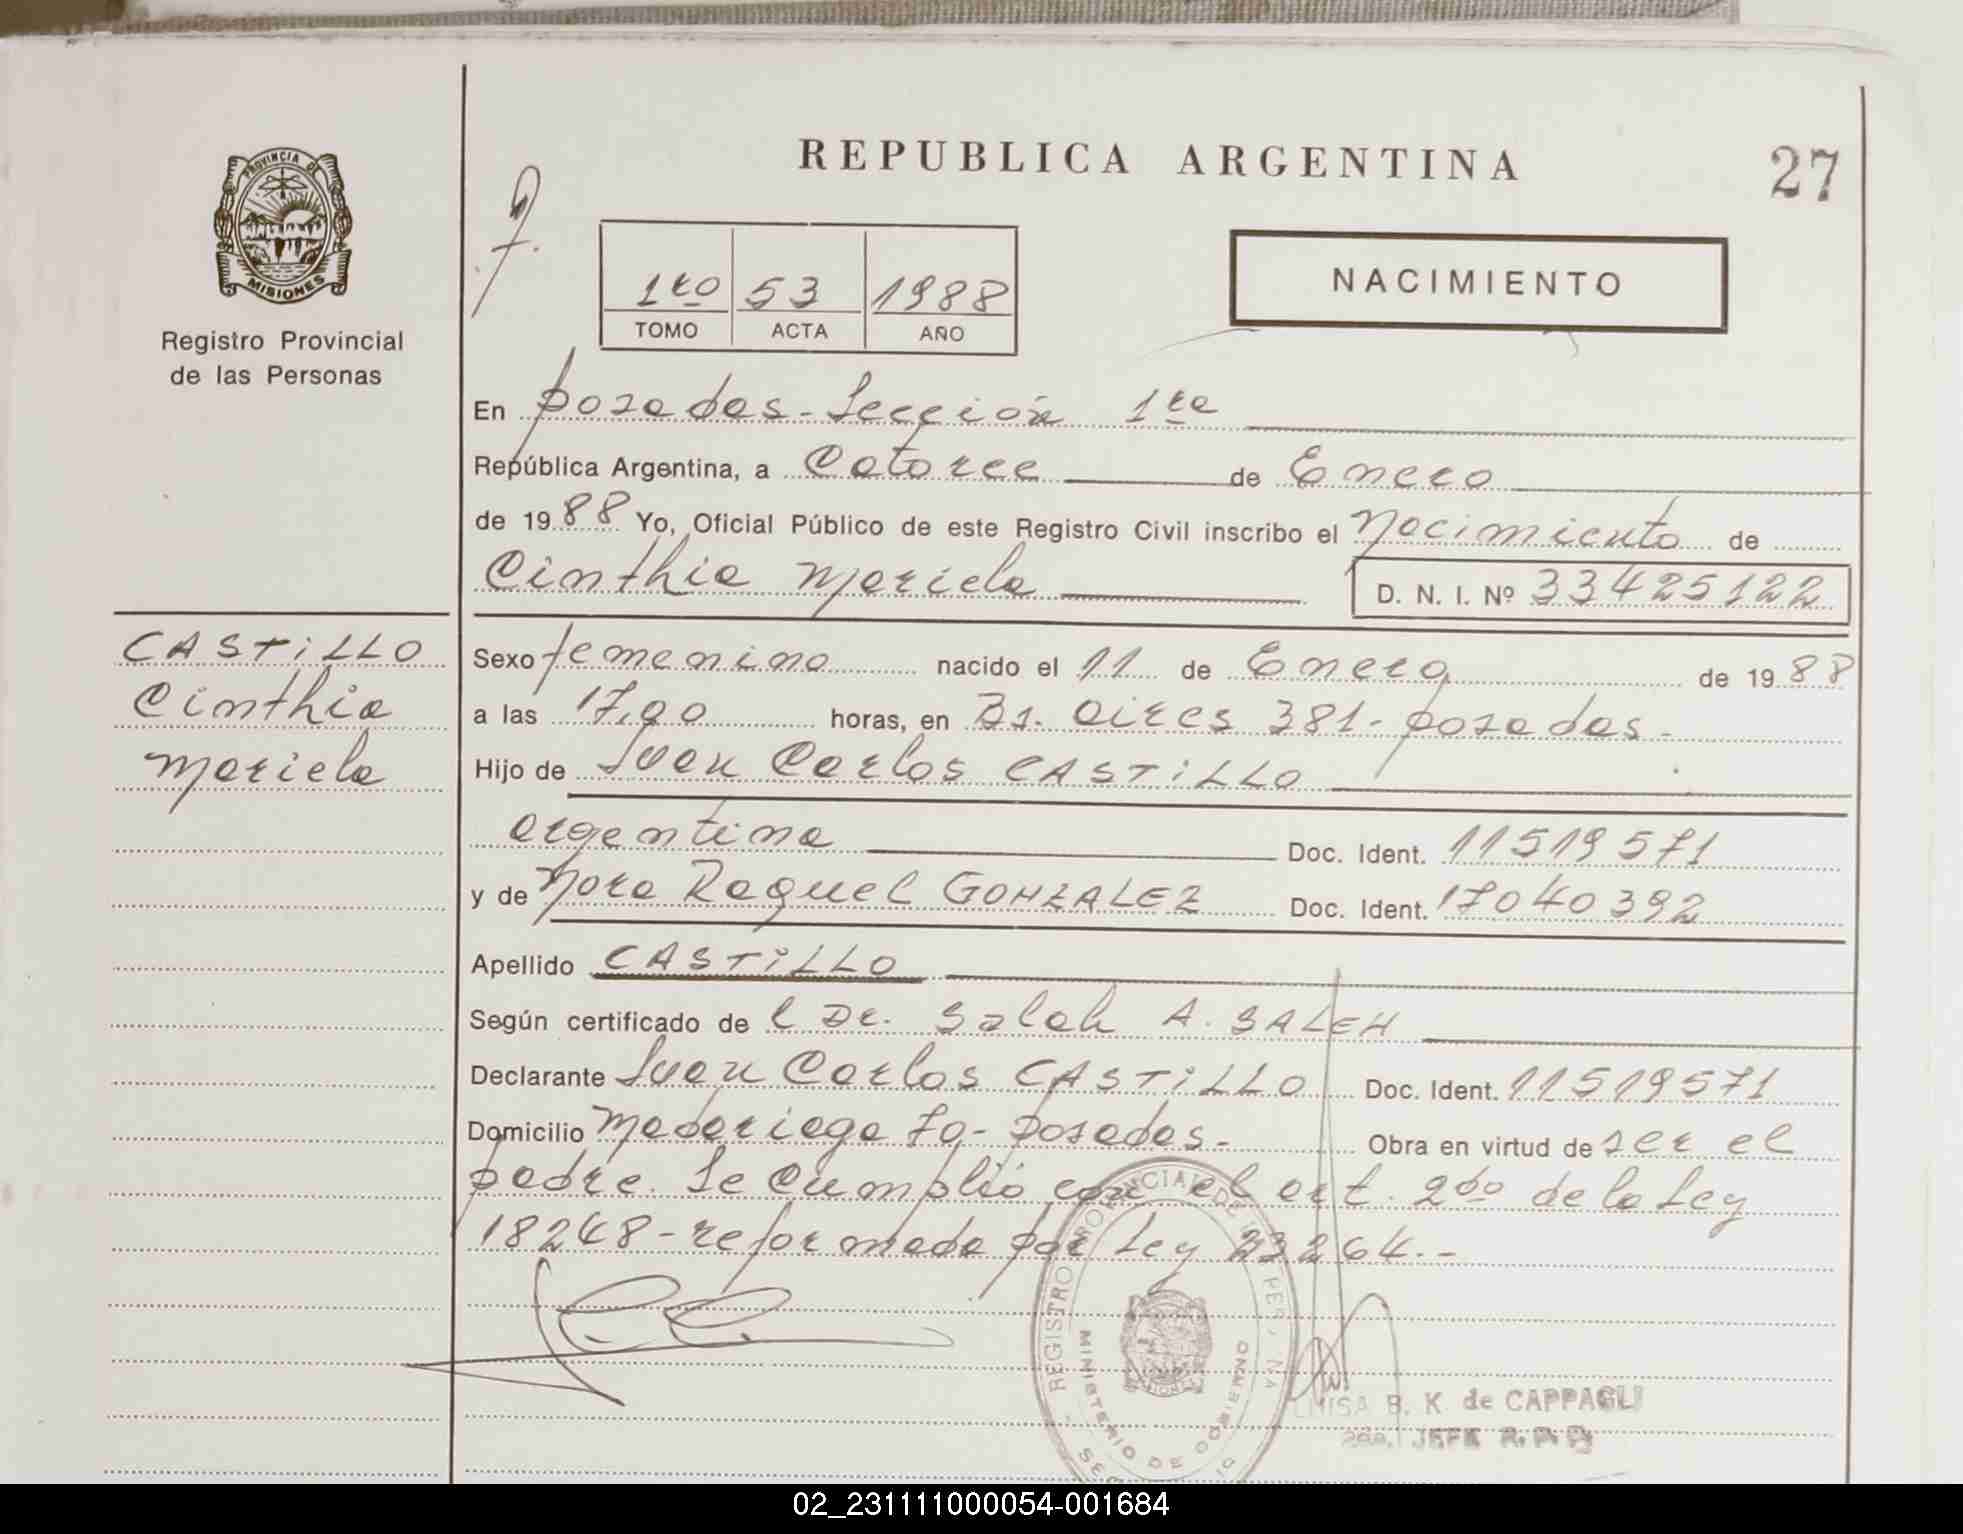 REPUBLICA ARGENTINA
27
PROVINCIA DE
MISIONES
Registro Provincial
de las Personas
1ro 53 1988
TOMO ACTA AÑO
NACIMIENTO
En Posadas - Sección 1ra
República Argentina, a Catorce de Enero
de 1988 Yo, Oficial Público de este Registro Civil inscribo el Nacimiento de
Cinthia Mariela D. N. I. Nº 33425122
CASTiLLO
Cinthia
Mariela
Sexo femenino nacido el 11 de Enero de 1988
a las 17,00 horas, en Bs. Aires 381 - Posadas -
Hijo de Juan Carlos CASTiLLO
argentina Doc. Ident. 11519571
y de Nora Raquel GONZALEZ Doc. Ident. 17040392
Apellido CASTiLLO
Según certificado de l Dr. Saleh A. SALEH
Declarante Juan Carlos CASTiLLO Doc. Ident. 11519571
Domicilio Madariaga - Posadas - Obra en virtud de ser el
padre. Se cumplió con el art. 2do de la Ley
18248 - reformada por Ley 23264.-
REGISTRO PROVINCIAL DE
MINISTERIO DE GOBIERNO
LUISA B. K. de CAPPAGLI
JEFE R. P. P.
02_231111000054-001684